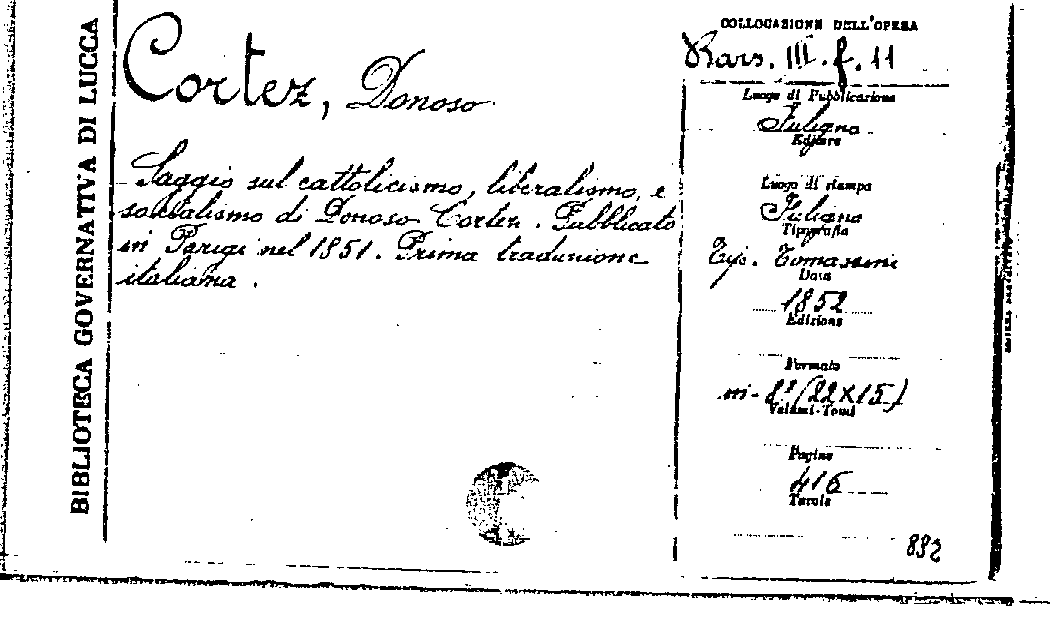 BIBLIOTECA GOVERNATIVA DI LUCCA
Cortez, Donoso
Saggio sul cattolicismo, liberalismo, e
socialismo di Donoso Cortez. Pubblicato
in Parigi nel 1851. Prima traduzione
italiana.
COLLOCAZIONE DELL'OPERA
III. f. 11
Luogo di Pubblicazione
Fuligno
Editore
Luogo di stampa
Fuligno
Tipografia
Tip. Tomassini
Data
1852
Edizione
Formato
in-8° (22x15)
Volumi-Tomi
Pagine
416
Tavole
892